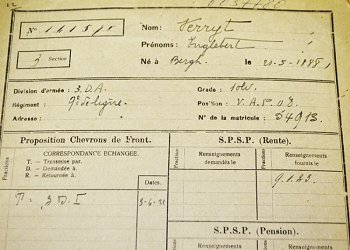 Nom: Verryt
Prénoms: Englebert
Né à Bergh, le 21-5-1889
N° 1218/1
3 Section
Division d'armée : 3. D.A.
Grade :
Régiment : 9e de ligne.
Position : V.A.P.O.Z.
Adresse :
N° de la matricule : 54913.
Proposition Chevrons de Front.
CORRESPONDANCE ECHANGEE.
T. — Transmise par.
D. — Demandée à.
R. — Retournée à.
Dates.
Fractions
T. 3 D.I
3-6-21
S.P.S.P. (Rente).
Fractions
Renseignements demandés le
Fractions
Renseignements fournis le
S.P.S.P. (Pension).
Renseignements
Renseignements